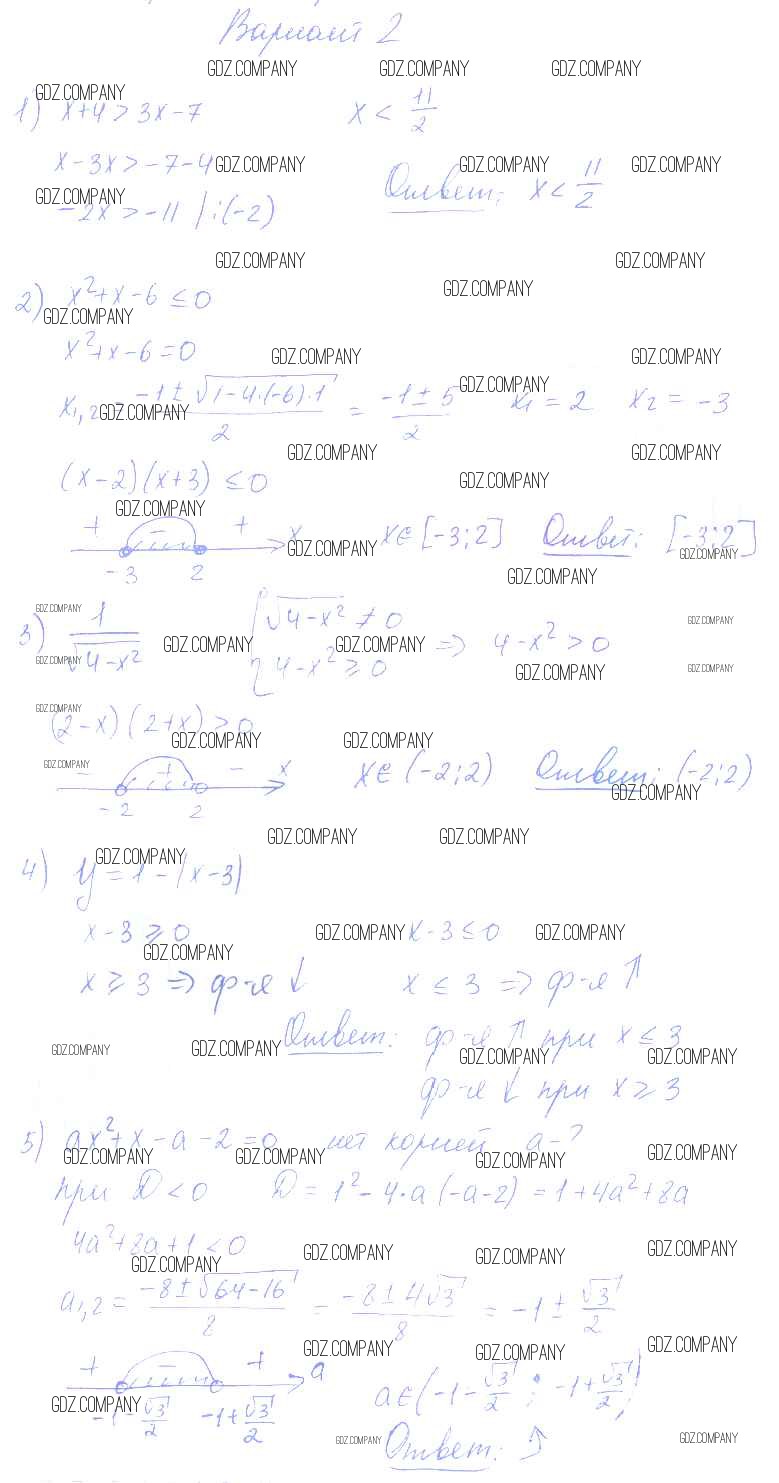 Вариант 2
GDZ.COMPANY GDZ.COMPANY GDZ.COMPANY
GDZ.COMPANY
1) x+4 > 3x-7 x < 11/2
x-3x > -7-4 GDZ.COMPANY GDZ.COMPANY GDZ.COMPANY
GDZ.COMPANY Ответ: x < 11/2
-2x > -11 | :(-2)
GDZ.COMPANY GDZ.COMPANY
2) x²+x-6 ≤ 0 GDZ.COMPANY
GDZ.COMPANY
x²+x-6=0 GDZ.COMPANY GDZ.COMPANY
x₁,₂ = (-1±√(1-4·(-6)·1))/2 = (-1±5)/2 x₁ = 2 x₂ = -3
GDZ.COMPANY GDZ.COMPANY
GDZ.COMPANY GDZ.COMPANY
(x-2)(x+3) ≤ 0 GDZ.COMPANY
GDZ.COMPANY
+ - + x GDZ.COMPANY x∈[-3;2] Ответ: [-3;2]
GDZ.COMPANY
-3 2 GDZ.COMPANY
GDZ.COMPANY GDZ.COMPANY
3) 1/√(4-x²) GDZ.COMPANY { √(4-x²) ≠ 0 4-x² ≥ 0 GDZ.COMPANY => 4-x² > 0
GDZ.COMPANY GDZ.COMPANY GDZ.COMPANY
GDZ.COMPANY
(2-x)(2+x) > 0
GDZ.COMPANY GDZ.COMPANY
GDZ.COMPANY
- + - x x∈(-2;2) Ответ: (-2;2)
GDZ.COMPANY
-2 2
GDZ.COMPANY GDZ.COMPANY
GDZ.COMPANY
4) y = 1-|x-3|
x-3 ≥ 0 GDZ.COMPANY x-3 ≤ 0 GDZ.COMPANY
GDZ.COMPANY
x ≥ 3 => ф-я ↓ x ≤ 3 => ф-я ↑
GDZ.COMPANY GDZ.COMPANY Ответ: ф-я ↑ при x ≤ 3
GDZ.COMPANY GDZ.COMPANY
ф-я ↓ при x ≥ 3
5) ax²+x-a-2=0 нет корней a-?
GDZ.COMPANY GDZ.COMPANY GDZ.COMPANY GDZ.COMPANY
при D<0 D = 1²-4·a(-a-2) = 1+4a²+8a
4a²+8a+1<0 GDZ.COMPANY GDZ.COMPANY GDZ.COMPANY
GDZ.COMPANY
a₁,₂ = (-8±√(64-16))/8 = (-8±4√3)/8 = -1±√3/2
GDZ.COMPANY GDZ.COMPANY GDZ.COMPANY
+ - + a a∈(-1-√3/2; -1+√3/2)
GDZ.COMPANY
-1-√3/2 -1+√3/2
GDZ.COMPANY Ответ: ↑ GDZ.COMPANY